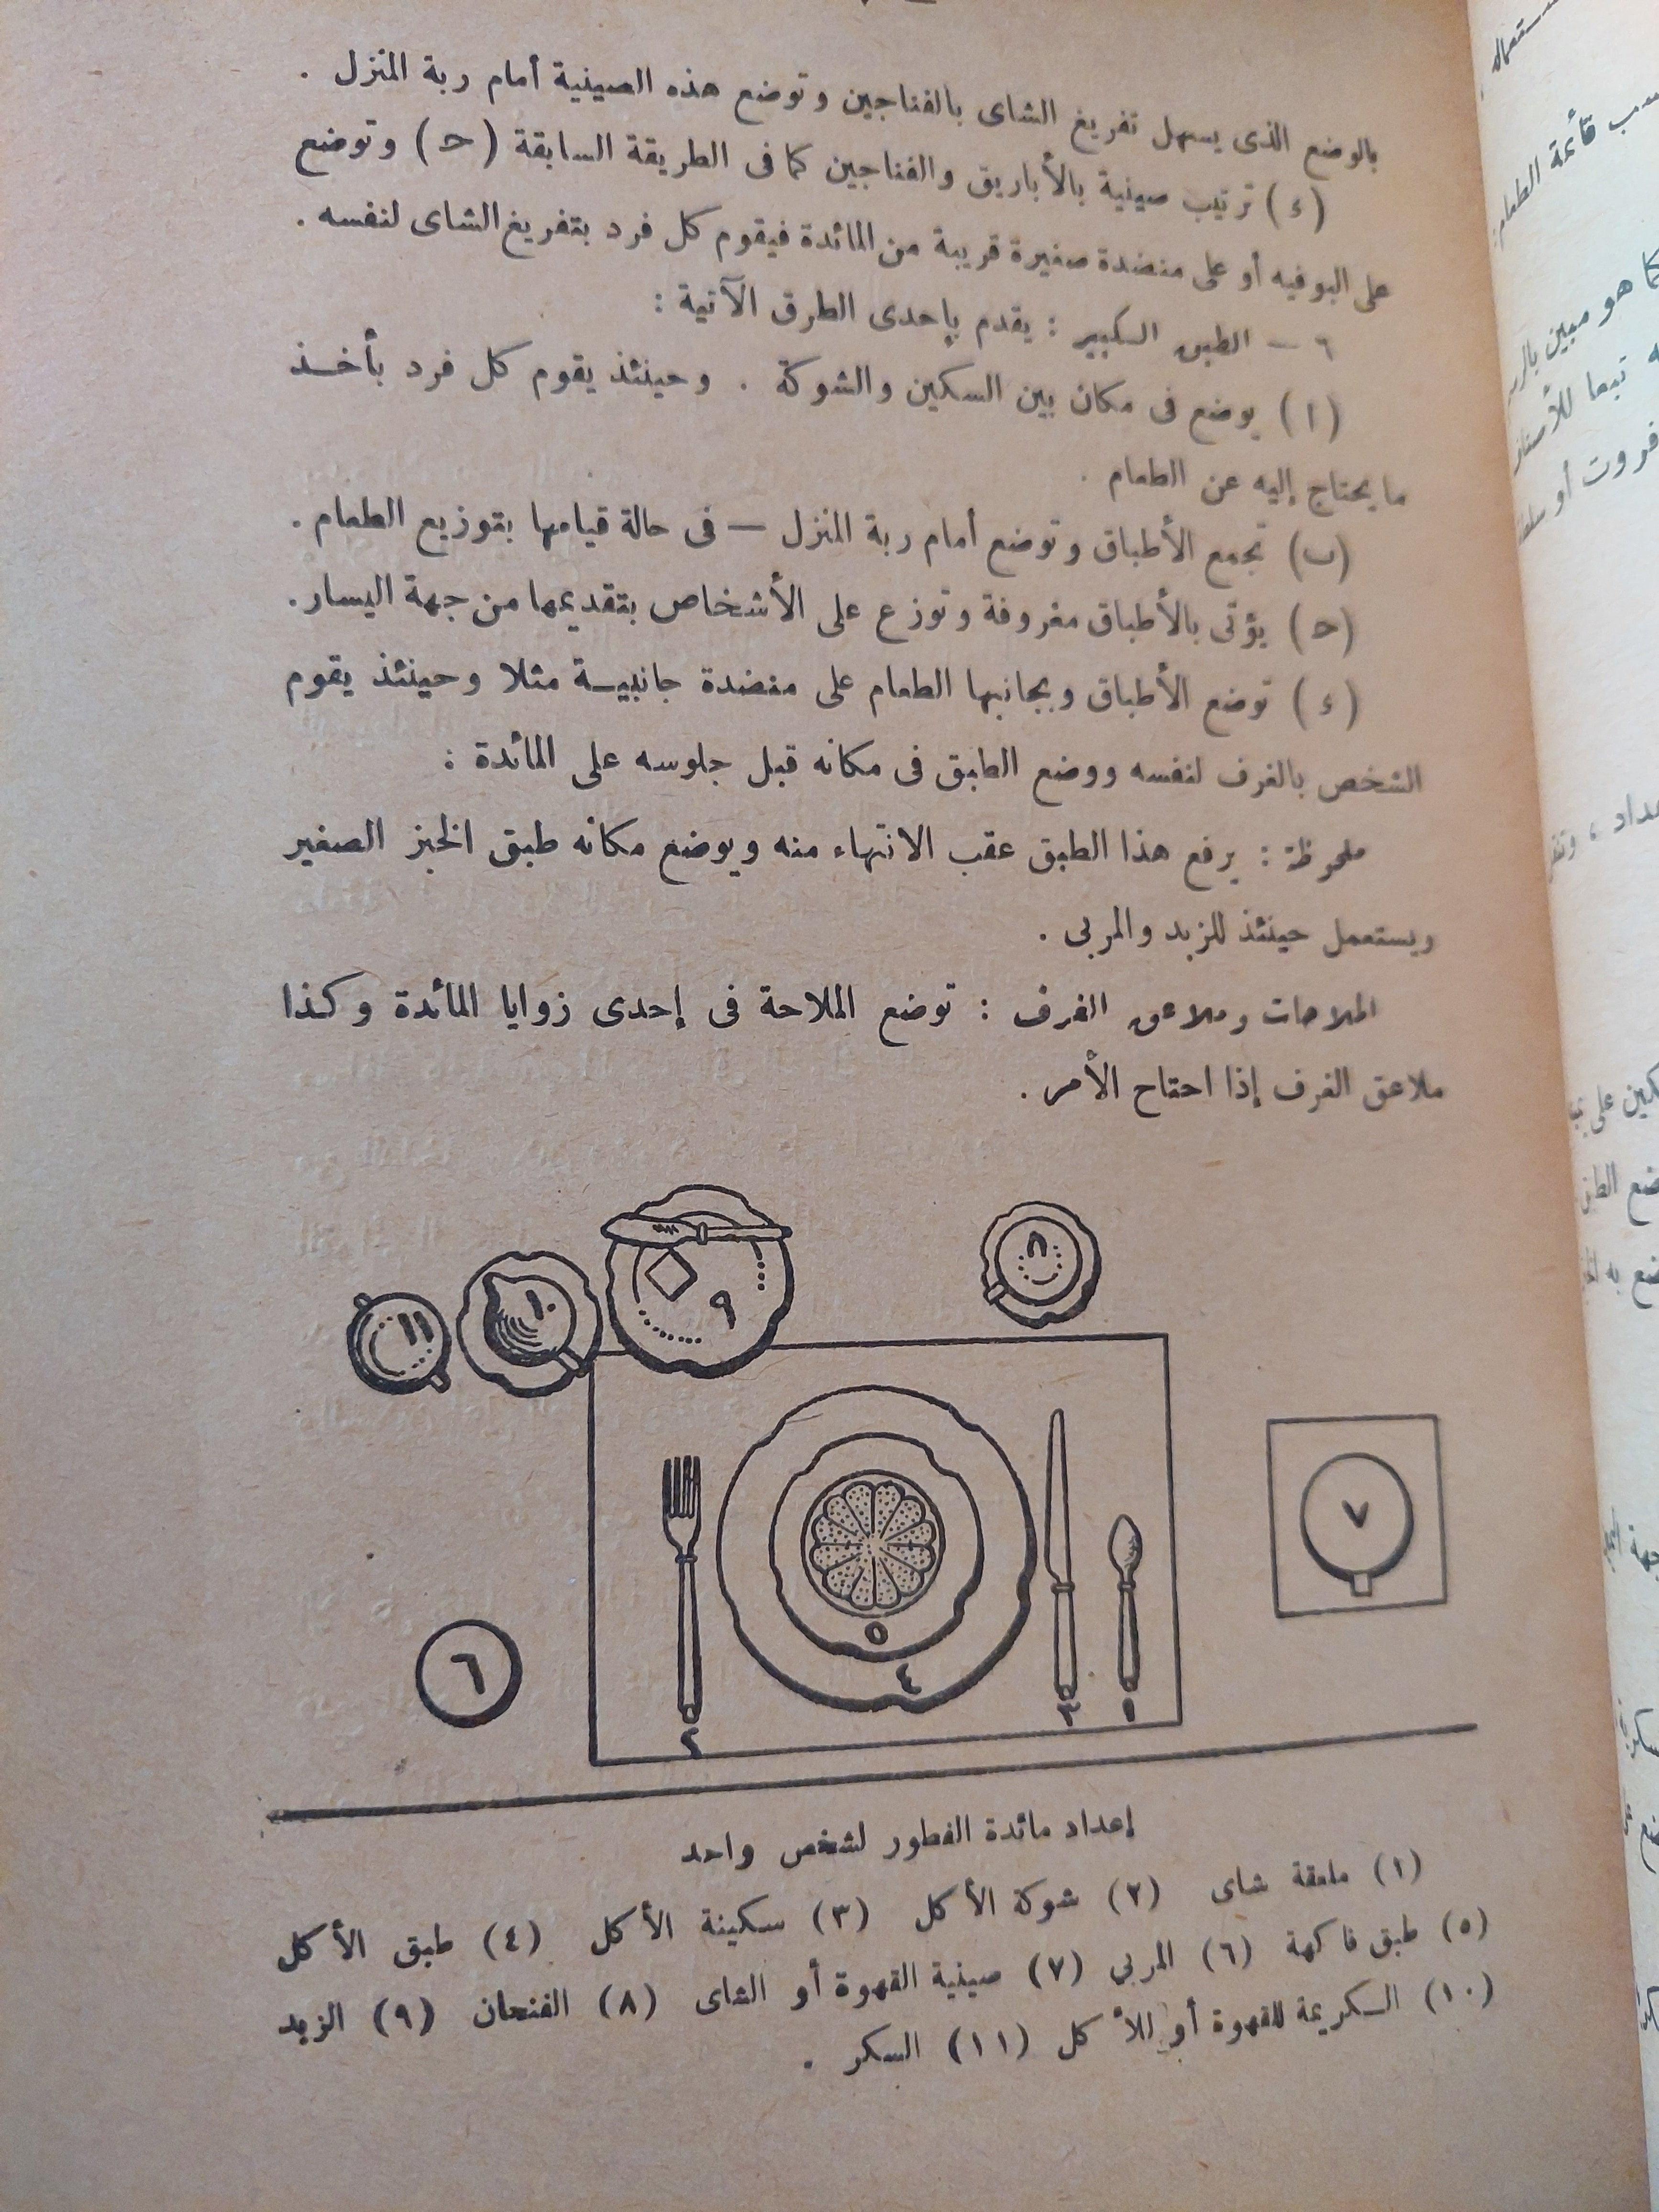 بالوضع الذى يسهل تفريغ الشاى بالفناجين وتوضع هذه الصينية أمام ربة المنزل .
(ء) ترتيب صينية بالأباريق والفناجين كما فى الطريقة السابقة (ح) وتوضع
على البوفيه أو على منضدة صغيرة قريبة من المائدة فيقوم كل فرد بتفريغ الشاى لنفسه .
٦ — الطبق الكبير : يقدم بإحدى الطرق الآتية :
(ا) يوضع فى مكان بين السكين والشوكة . وحينئذ يقوم كل فرد بأخذ
ما يحتاج إليه عن الطعام .
(ب) تجمع الأطباق وتوضع أمام ربة المنزل — فى حالة قيامها بتوزيع الطعام .
(ح) يؤتى بالأطباق مغروفة وتوزع على الأشخاص بتقديمها من جهة اليسار .
(ء) توضع الأطباق وبجانبها الطعام على منضدة جانبية مثلا وحينئذ يقوم
الشخص بالغرف لنفسه ووضع الطبق فى مكانه قبل جلوسه على المائدة :
ملحوظة : يرفع هذا الطبق عقب الانتهاء منه ويوضع مكانه طبق الخبز الصغير
ويستعمل حينئذ للزبد والمربى .
الملاحات وملاعق الغرف : توضع الملاحة فى إحدى زوايا المائدة وكذا
ملاعق الغرف إذا احتاح الأمر .
٨
٩
١٠
١١
٧
٥
٤
٦
١
٣
٢
إعداد مائدة الفطور لشخص واحد
(١) ملعقة شاى (٢) شوكة الأكل (٣) سكينة الأكل (٤) طبق الأكل
(٥) طبق فاكهة (٦) المربى (٧) صينية القهوة أو الشاى (٨) الفنجان (٩) الزبد
(١٠) السكريمة للقهوة أو للأكل (١١) السكر .